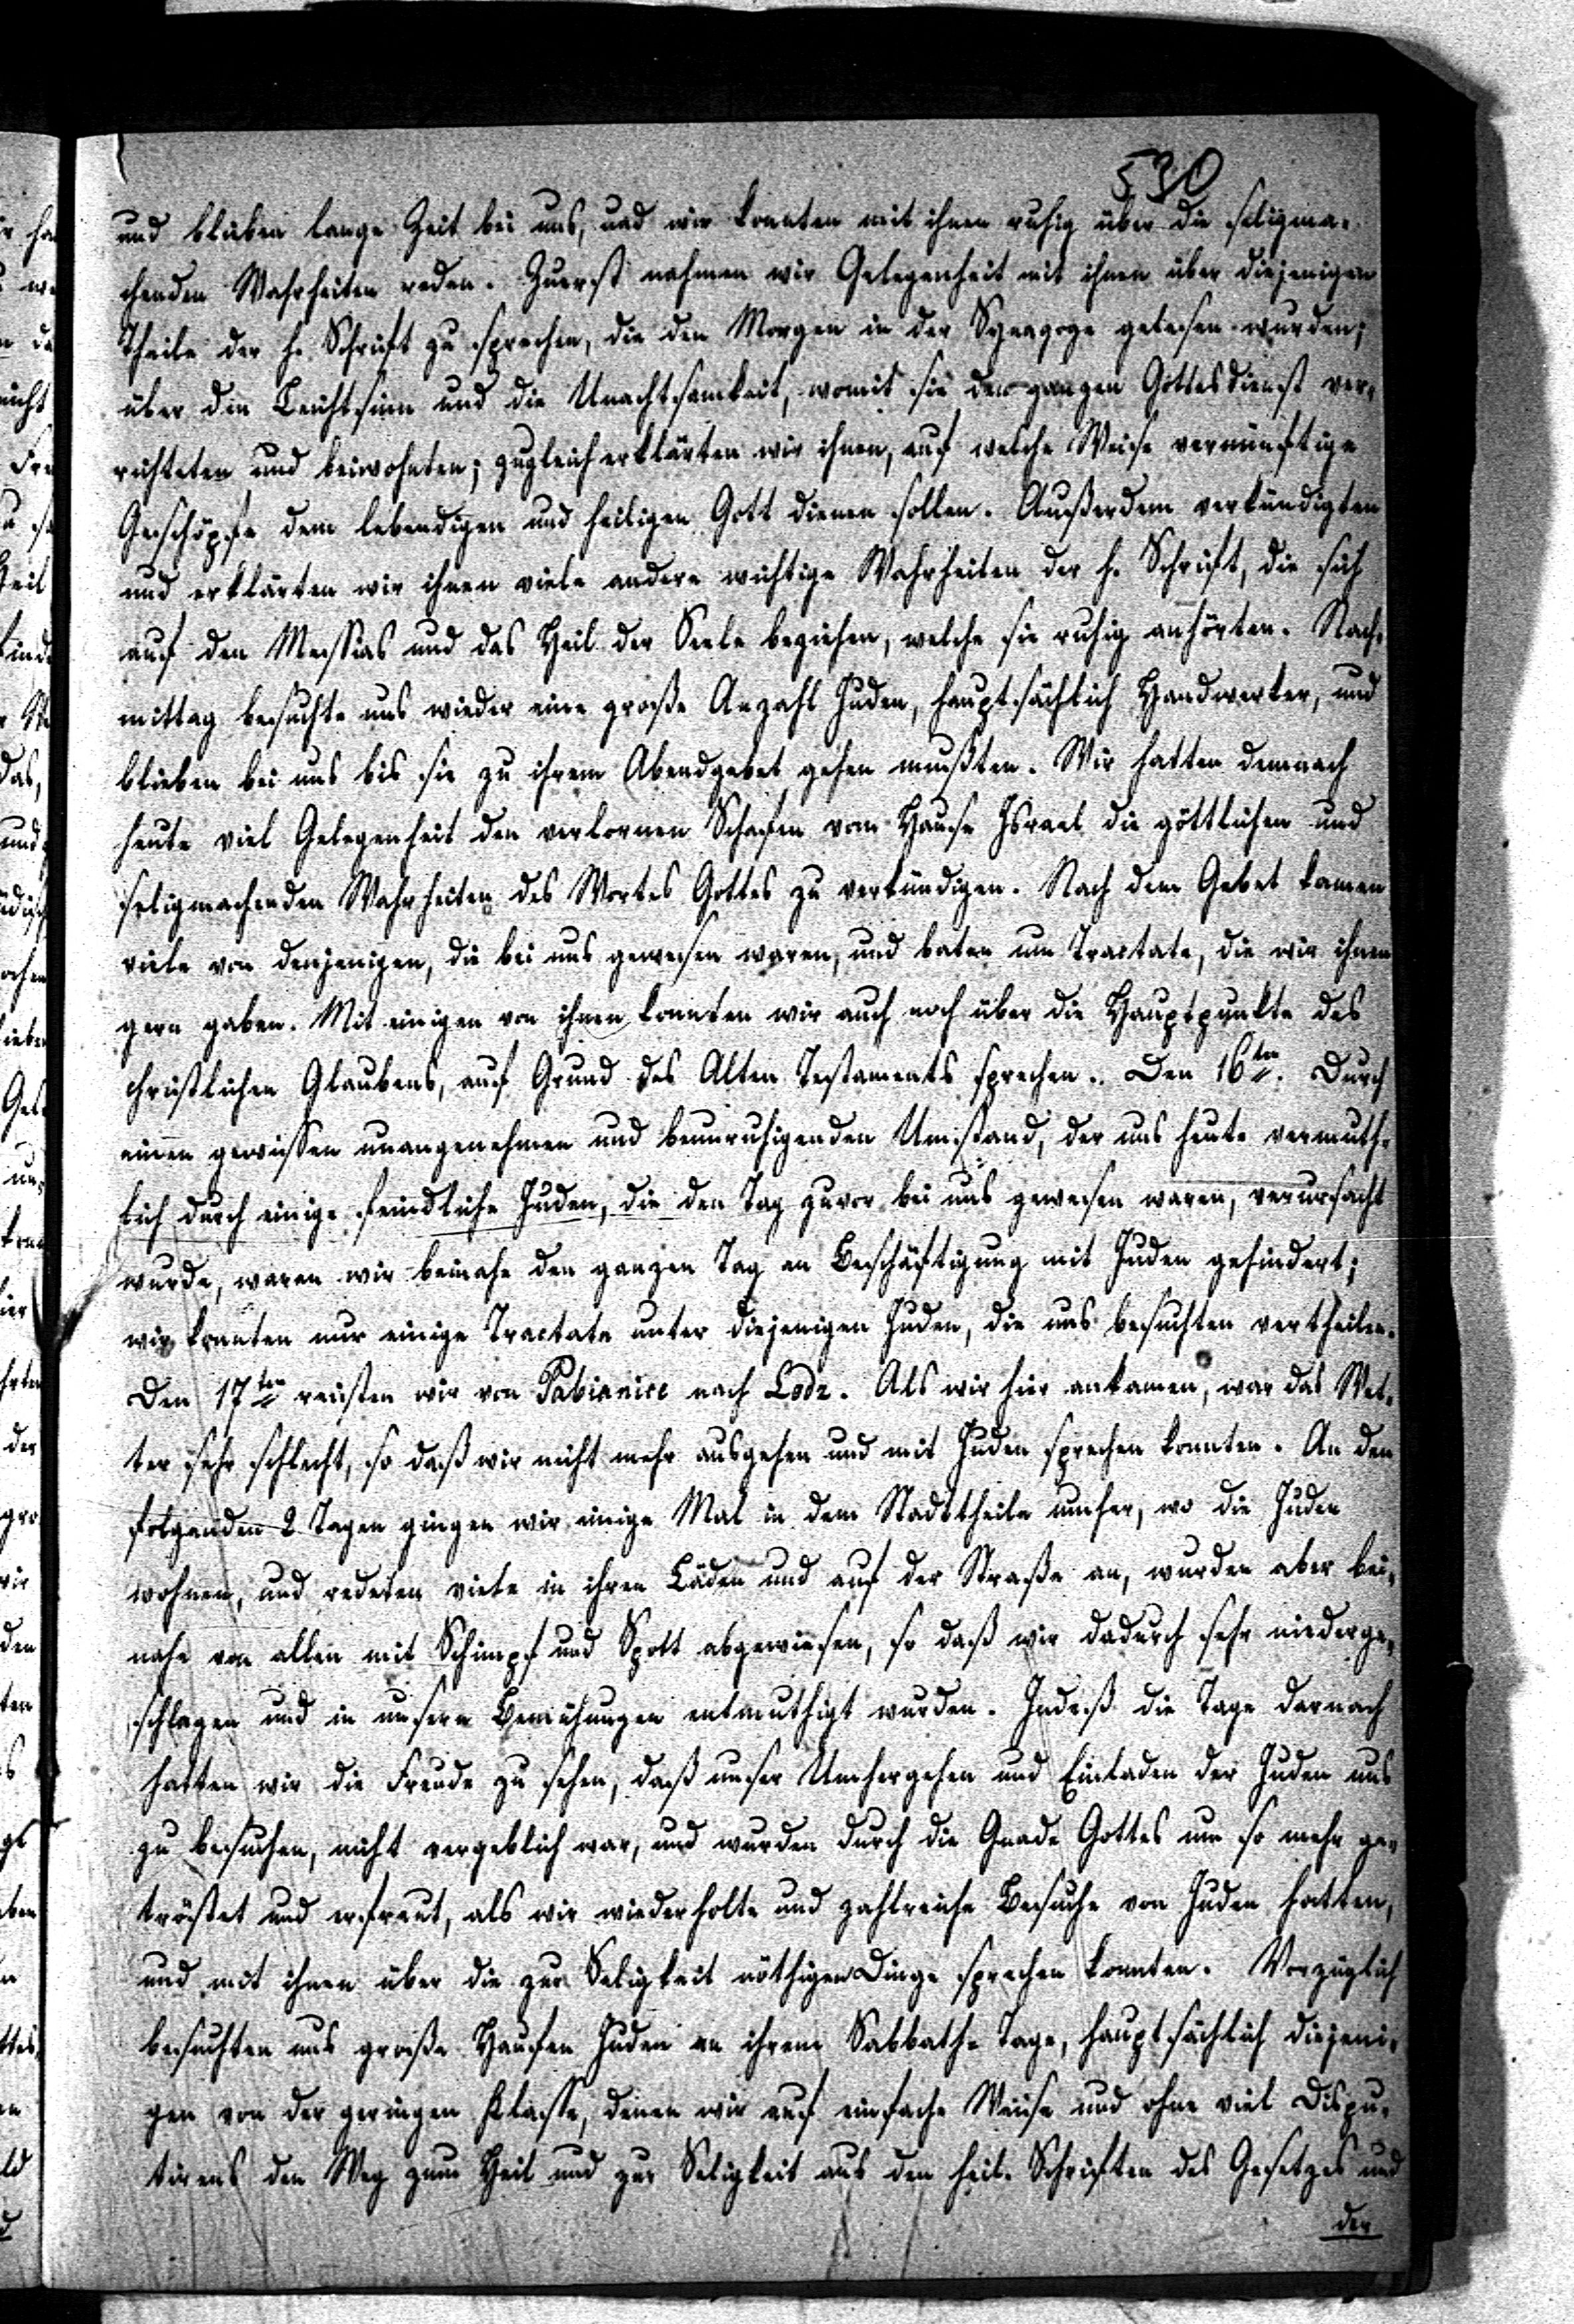 530
und blieben lange Zeit bei uns, und wir konnten mit ihnen ruhig über die seligma-
chenden Wahrheiten reden. Zuerst nahmen wir Gelegenheit mit ihnen über diejenigen
Theile der h. Schrift zu sprechen, die den Morgen in der Synagoge gelesen wurden;
über den Leichtsinn und die Unachtsamkeit, womit sie den ganzen Gottesdienst ver-
richteten und beiwohnten; zugleich erklärten wir ihnen, auf welche Weise vernünftige
Geschöpfe dem lebendigen und heiligen Gott dienen sollen. Außerdem verkündigten
und erklärten wir ihnen viele andere wichtige Wahrheiten der h. Schrift, die sich
auf den Messias und das Heil der Seele beziehen, welche sie ruhig anhörten. Nach-
mittag besuchte uns wieder eine große Anzahl Juden, hauptsächlich Handwerker, und
blieben bei uns bis sie zu ihrem Abendgebet gehen mußten. Wir hatten demnach
heute viel Gelegenheit den verlornen Schafen vom Hause Israel die göttlichen und
seligmachenden Wahrheiten des Wortes Gottes zu verkündigen. Nach dem Gebet kamen
viele von denjenigen, die bei uns gewesen waren, und baten um Tractate, die wir ihnen
gern gaben. Mit einigen von ihnen konnten wir auch noch über die Hauptpunkte des
christlichen Glaubens, auf Grund des Alten Testaments sprechen. Den 16ten. Durch
einen gewissen unangenehmen und beunruhigenden Umstand, der uns heute vermuth-
lich durch einige feindliche Juden, die den Tag zuvor bei uns gewesen waren, verursacht
wurde, waren wir beinahe den ganzen Tag an Beschäftigung mit Juden gehindert;
wir konnten nur einige Tractate unter diejenigen Juden, die uns besuchten vertheilen.
Den 17ten reisten wir von Pabianice nach Lodz. Als wir hier ankamen, war das Wet-
ter sehr schlecht, so daß wir nicht mehr ausgehen und mit Juden sprechen konnten. An den
folgenden 2 Tagen gingen wir einige Mal in dem Stadttheile umher, wo die Juden
wohnen, und redeten viele in ihren Läden und auf der Straße an, wurden aber bei-
nahe von allen mit Schimpf und Spott abgewiesen, so daß wir dadurch sehr niederge-
schlagen und in unsern Bemühungen entmuthigt wurden. Indeß die Tage darnach
hatten wir die Freude zu sehen, daß unser Umhergehen und Einladen der Juden uns
zu besuchen, nicht vergeblich war, und wurden durch die Gnade Gottes um so mehr ge-
tröstet und erfreut, als wir wiederholte und zahlreiche Besuche von Juden hatten,
und mit ihnen über die zur Seligkeit nöthigen Dinge sprechen konnten. Vorzüglich
besuchten uns große Haufen Juden an ihrem Sabbath-Tage, hauptsächlich diejeni-
gen von der geringen Klasse, denen wir auf einfache Weise und ohne viel Dispu-
tirens den Weg zum Heil und zur Seligkeit aus den heil. Schriften des Gesetzes und
der